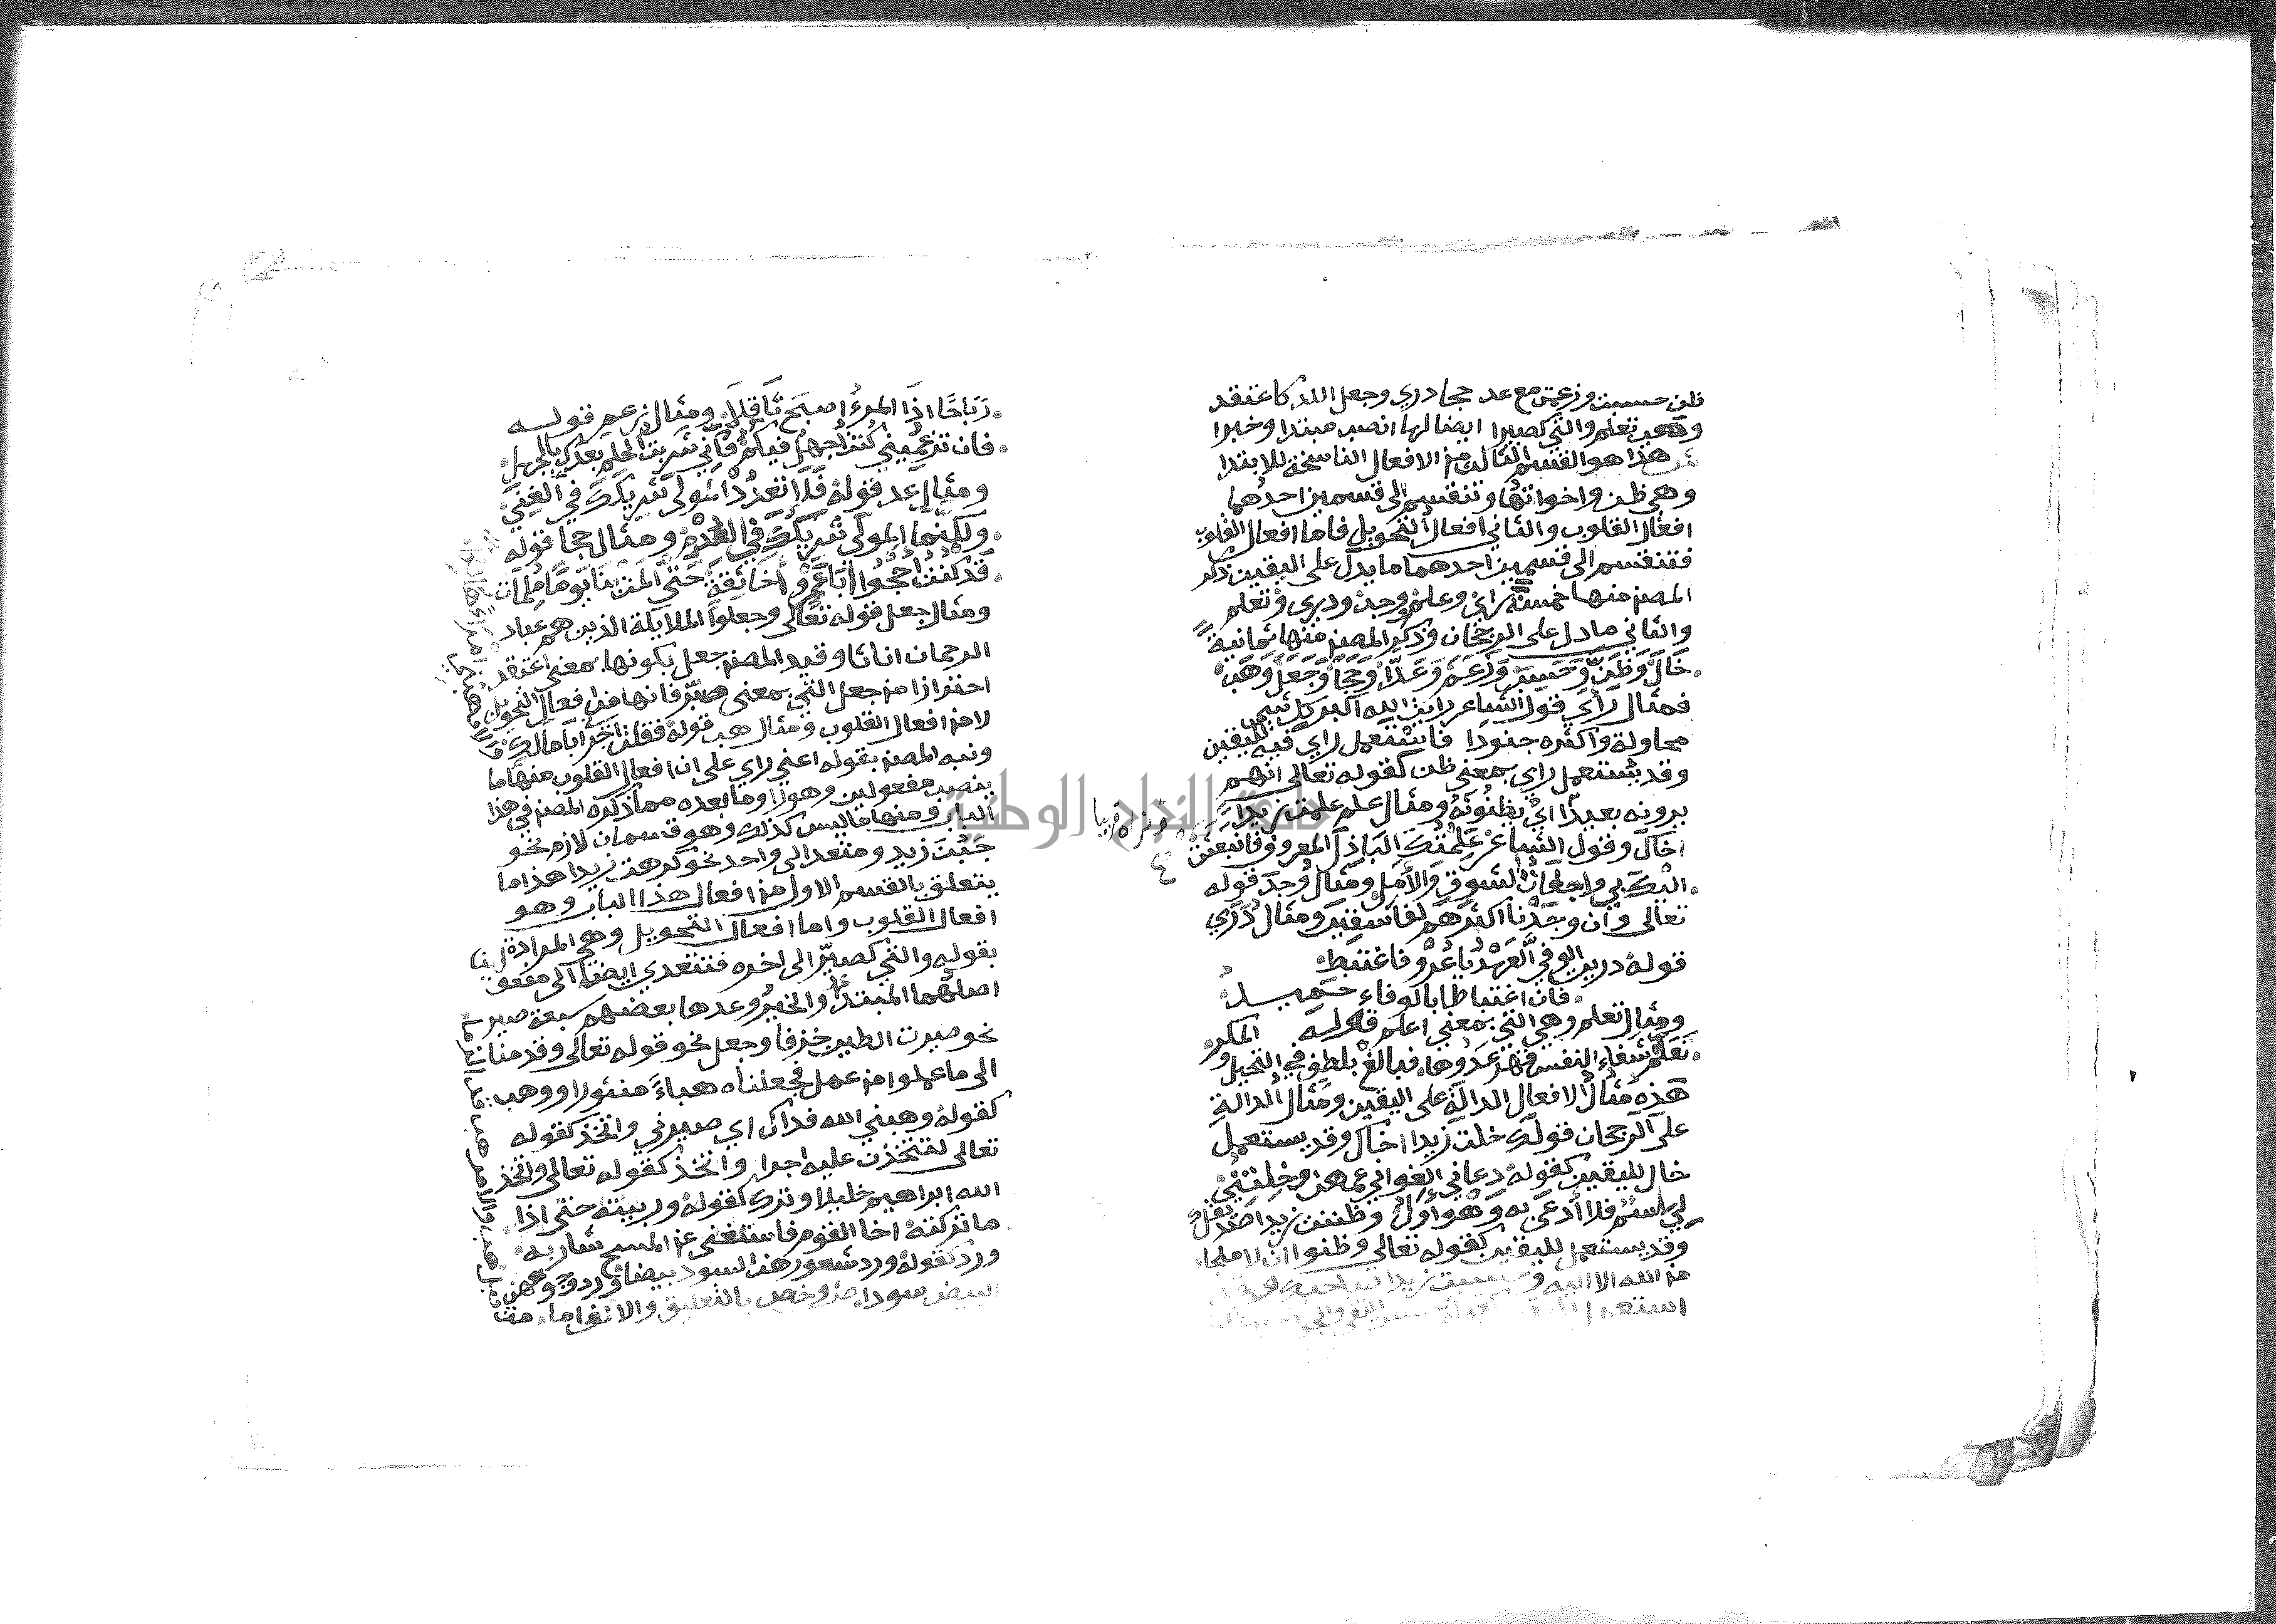 ظن حسبت وزعمت مع عد حجا دري وجعل اللذ كاعتقد
وهب تعلم والتي كصيرا ايضا لها انصب مبتدا وخبرا
هذا هو القسم الثالث من الافعال الناسخة للابتدا
وهي ظن واخواتها وتنقسم الى قسمين احدهما
افعال القلوب والثاني افعال التحويل فاما افعال القلوب
فتنقسم الى قسمين احدهما ما يدل على اليقين ذكر
المصن منها خمسة راى وعلم ووجد ودرى وتعلم
والثاني ما دل على الرجحان وذكر المصن منها ثمانية
خَالَ وَظَنَّ وَحَسِبَ وَزَعَمَ وَعَدَّ وَحَجَا وَجَعَلَ وَهَبْ
فمثال راي قول الشاعر رايت الله اكبر كل شيء
محاولة واكثره جنودا فاستعمل راي فيه لليقين
وقد يستعمل راي بمعنى ظن كقوله تعالى انهم
يرونه بعيدا اي يظنونه ومثال علم علمت زيدا ونراه قريبا
اخاك وقول الشاعر عَلِمْتُكَ الباذل المعروف فانبعثت
اليك بي واجفات الشوق والأمل ومثال وجد قوله
تعالى وان وجدنا اكثرهم لفاسقين ومثال دَرَي
قوله دريت الوفي العهد يا عُرْوَ فاغتبط
فان اغتباطا بالوفاء حميدُ
ومثال تعلم وهي التي بمعنى اعلم قوله
تعلم شفاء النفس قهر عدوها فبالغ بلطف في التحيل والمكر
هذه مثال الافعال الدالة على اليقين ومثال الدالة
على الرجحان قولك خلت زيدا اخاك وقد يستعمل
خال لليقين كقوله دعاني الغواني عمهن وخلتني
لي اسم فلا أدعى به وهو أول وظننت زيدا صديقك
وقد يستعمل لليقين كقوله تعالى وظنوا ان لا ملجا
من الله الا اليه
رَبَاحًا اذا المرءُ اصبح ثَاقِلاَ ومثال زعم قوله
فان تزعميني كنت اجهل فيكم فاني شريت الحلم بعدك بالجهل
ومثال عد قوله فلا تعدد المولى شريكك في الغنى
ولكنما المولى شريكك في العدم ومثال حجا قوله
قد كنت احجوا ابا عمرو أخا ثقة حتى المت بنا يوما ملمات
ومثال جعل قوله تعالى وجعلوا الملايكة الذين هم عباد
الرحمان اناثا وقيد المصن جعل بكونها بمعنى اعتقد
احترازا من جعل التي بمعنى صيّر فانها من افعال التحويل
لا من افعال القلوب ومثال هب قوله فقلت اجرني ابا مالك
ونبه المصن بقوله اعني راي على ان افعال القلوب منها ما
ينصب مفعولين وهو راى وما بعده مما ذكره المصن في هذا
الباب ومنها ما ليس كذلك وهو قسمان لازم نحو
جَبُنَ زيد ومتعد الى واحد نحو كرهت زيدا هذا ما
يتعلق بالقسم الاول من افعال هذا الباب وهو
افعال القلوب واما افعال التحويل وهي المرادة
بقوله والتي كصيّر الى اخره فتتعدي ايضا الى مفعولين
اصلهما المبتدا والخبر وعدها بعضهم سبعة صير
نحو صيرت الطين خزفا وجعل نحو قوله تعالى وقدمنا
الى ما عملوا من عمل فجعلناه هباءً منثورا ووهب
كقوله وهبني الله فداك اي صيرني واتخذ كقوله
تعالى لتتخذن عليه اجرا واتخذ كقوله تعالى واتخذ
الله ابراهيم خليلا وترك كقوله وربيته حتى اذا
ما تركته اخا القوم فاستغنى عن المسح شاربه
ورد كقوله ورد شعورهن السود بيضا ورد وجوههن
البيض سودا وخص بالتعليق والالغا ما من